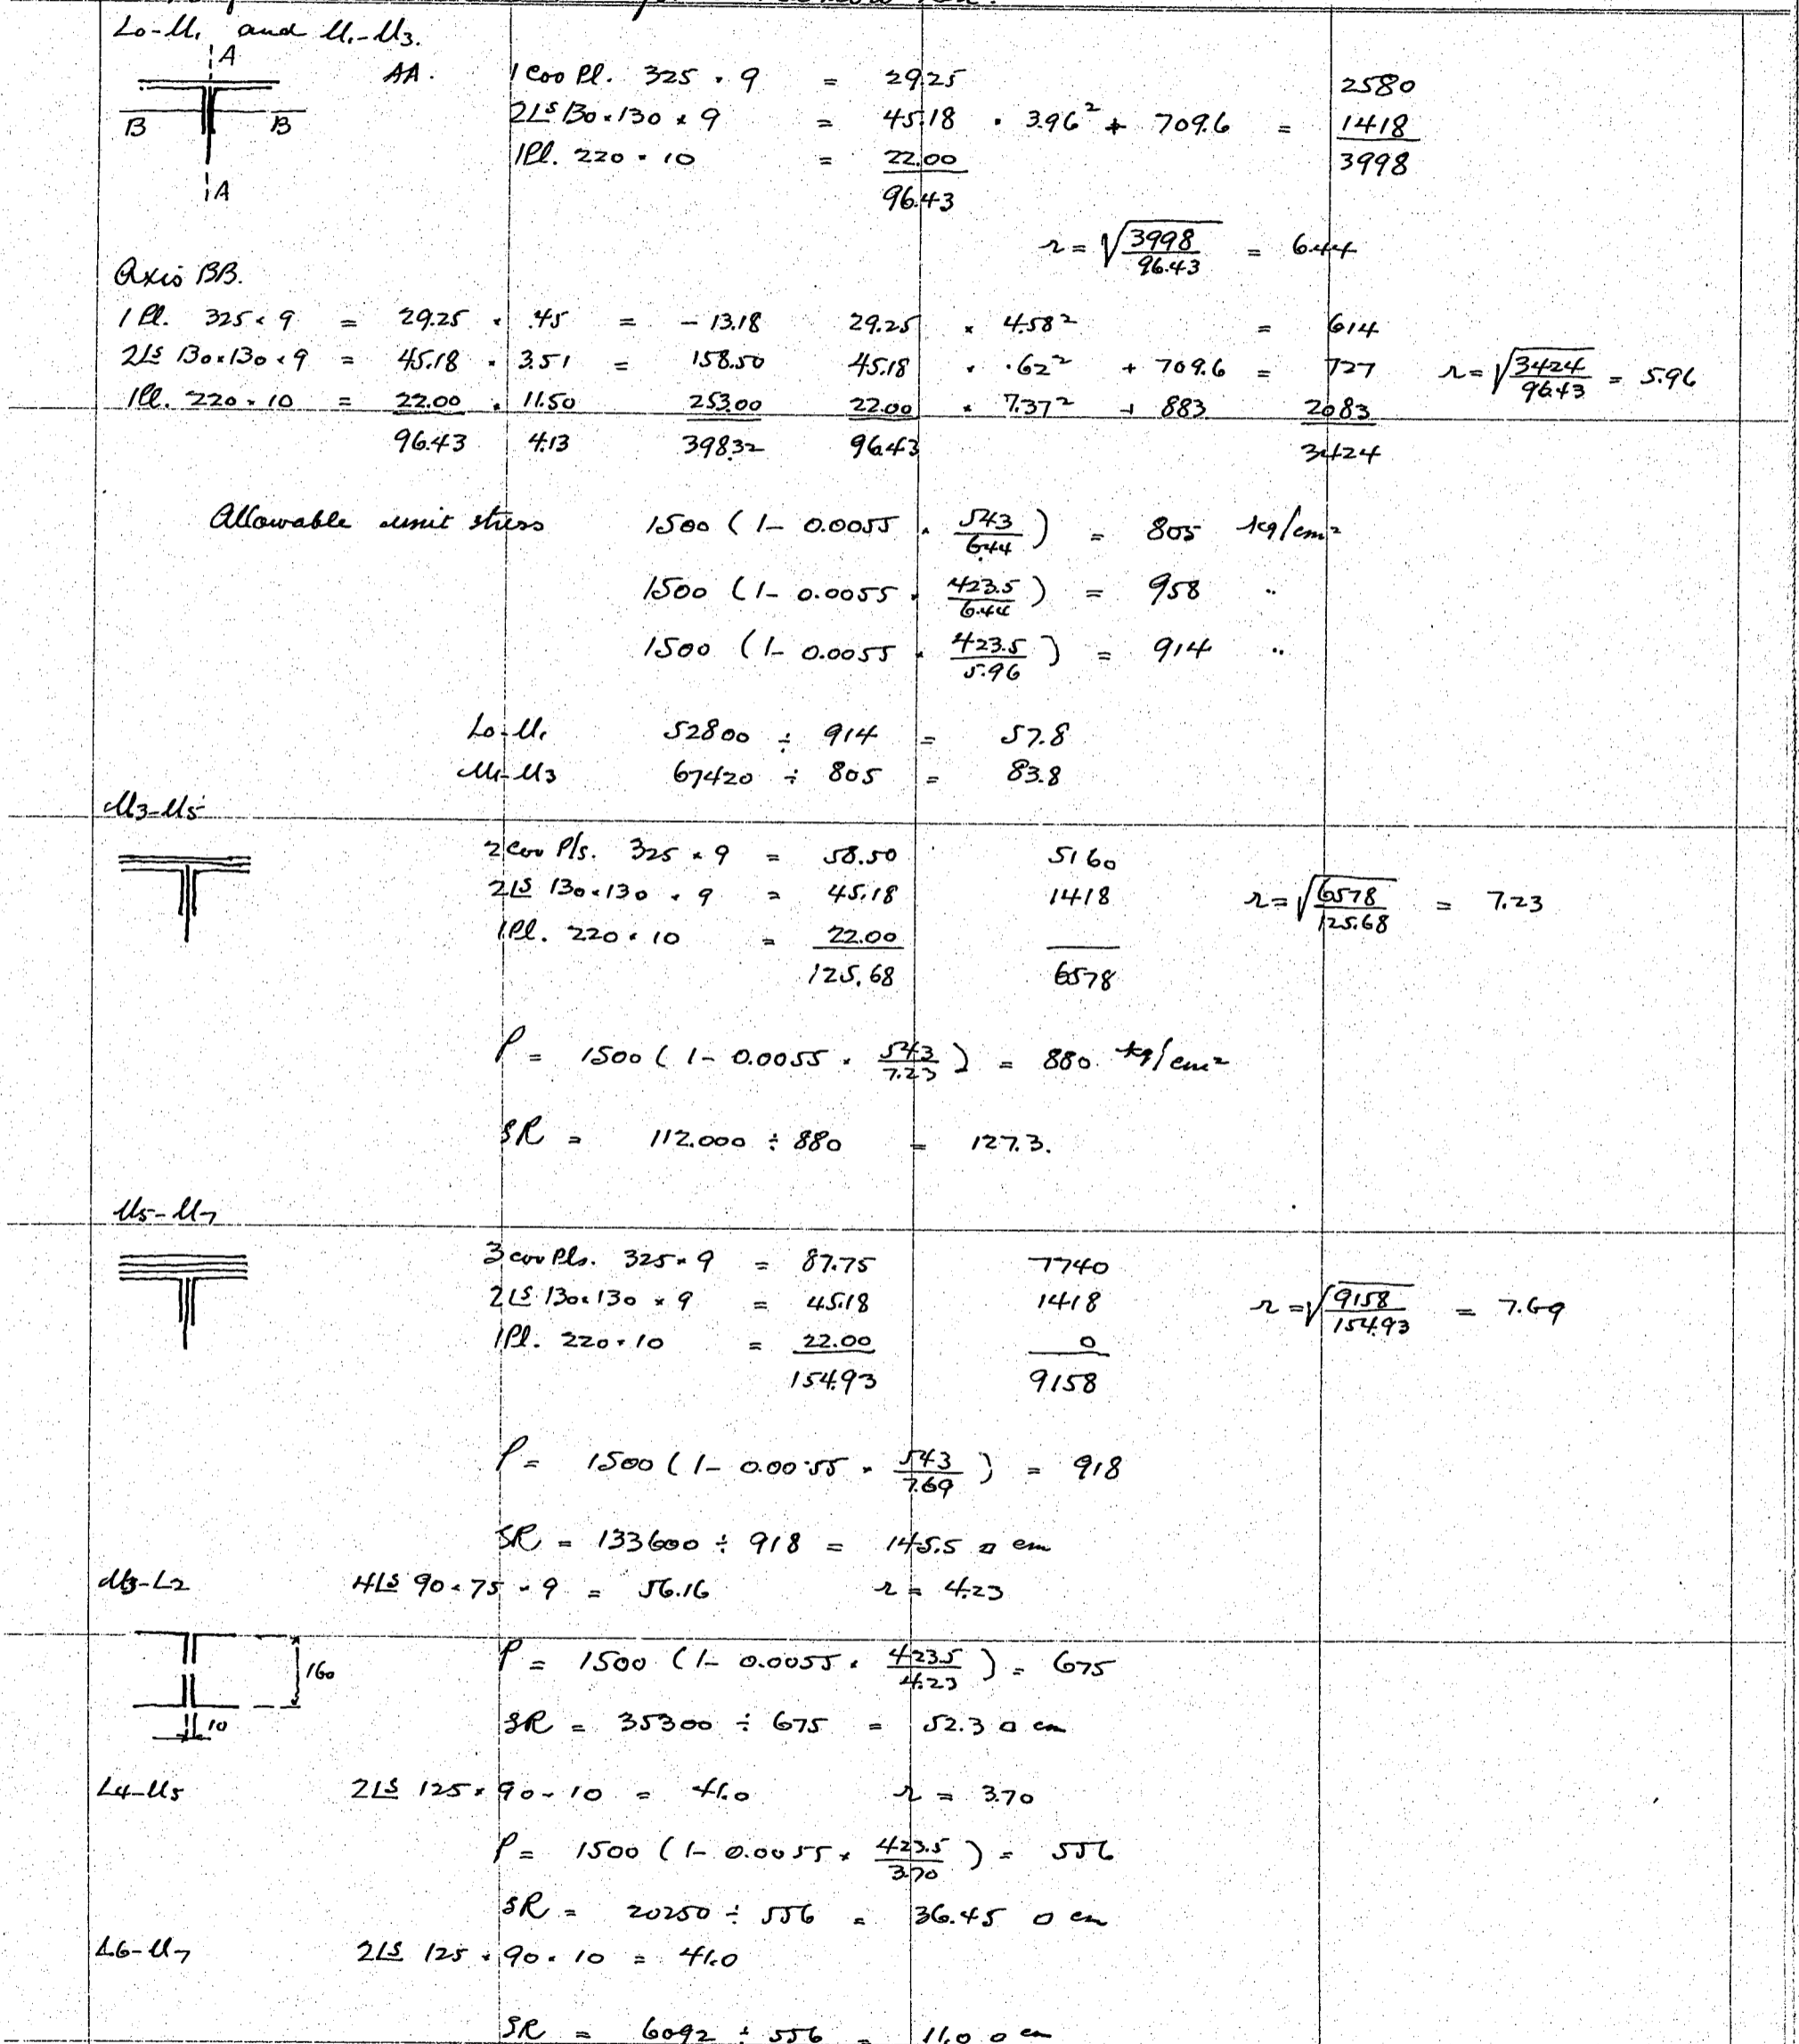 L0-U1 and U1-U3.
A
AA. 1 Cov Pl. 325 × 9 = 29.25 2580
B B 2Ls 130×130×9 = 45.18 × 3.96² + 709.6 = 1418
1Pl. 220×10 = 22.00 3998
A 96.43
r = √3998/96.43 = 6.44
Axis BB.
1 Pl. 325×9 = 29.25 × .45 = -13.18 29.25 × 4.58² = 614
2Ls 130×130×9 = 45.18 × 3.51 = 158.50 45.18 × .62² + 709.6 = 727 r = √3424/96.43 = 5.96
1Pl. 220×10 = 22.00 × 11.50 253.00 22.00 × 7.37² + 883 2083
96.43 4.13 398.32 96.43 3424
Allowable unit stress 1500 (1- 0.0055 × 543/6.44) = 805 kg/cm²
1500 (1- 0.0055 × 423.5/6.44) = 958 "
1500 (1- 0.0055 × 423.5/5.96) = 914 "
L0-U1 52800 ÷ 914 = 57.8
U1-U3 67420 ÷ 805 = 83.8
U3-U5
2 cov Pls. 325×9 = 58.50 5160
2Ls 130×130×9 = 45.18 1418 r = √6578/125.68 = 7.23
1Pl. 220×10 = 22.00
125.68 6578
P = 1500 (1- 0.0055 × 543/7.23) = 880 kg/cm²
SR = 112.000 ÷ 880 = 127.3.
U5-U7
3 cov Pls. 325×9 = 87.75 7740
2Ls 130×130×9 = 45.18 1418 r = √9158/154.93 = 7.69
1Pl. 220×10 = 22.00 0
154.93 9158
P = 1500 (1- 0.0055 × 543/7.69) = 918
SR = 133600 ÷ 918 = 145.5 □ cm
U3-L2 4Ls 90×75×9 = 56.16 r = 4.23
160 P = 1500 (1- 0.0055 × 423.5/4.23) = 675
10 SR = 35300 ÷ 675 = 52.3 □ cm
L4-U5 2Ls 125×90×10 = 41.0 r = 3.70
P = 1500 (1- 0.0055 × 423.5/3.70) = 556
SR = 20250 ÷ 556 = 36.45 □ cm
L6-U7 2Ls 125×90×10 = 41.0
SR = 6092 ÷ 556 = 11.0 □ cm